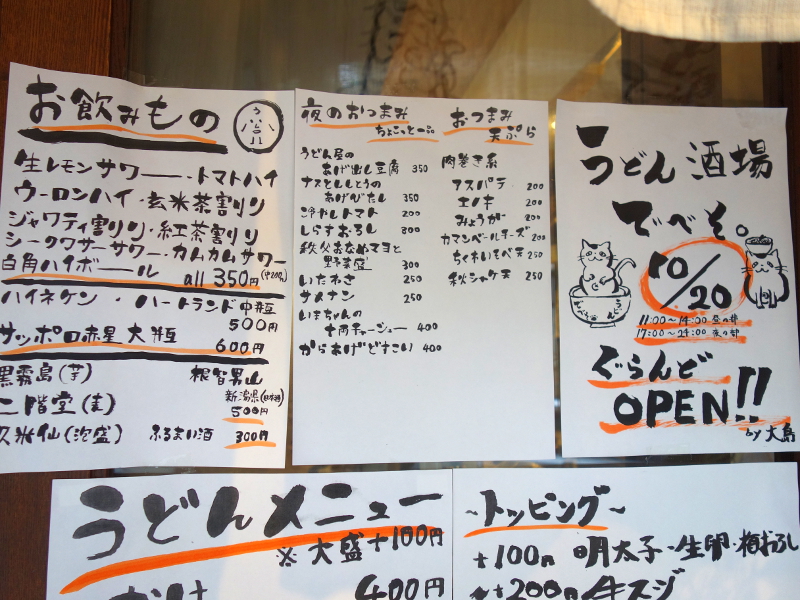 お飲みもの
うどん
生レモンサワー・トマトハイ
ウーロンハイ・玄米茶割り
ジャワティ割り・紅茶割り
シークワサーサワー・カムカムサワー
白角ハイボール all 350円(中200円)
ハイネケン・ハートランド中瓶
500円
サッポロ赤星 大瓶
600円
黒霧島(芋) 根智男山
二階堂(麦) 新潟県(日本酒)
500円
久米仙(泡盛) ふるまい酒 300円
夜のおつまみ
ちょこっと
うどん屋の
あげ出し豆腐 350
ナスとししとうの
あげびたし 350
冷やしトマト 200
しらすおろし 300
秩父おなめマヨと
野菜盛 300
いたわさ 250
250
いまちゃんの
チャーシュー 400
からあげどすこい 400
おつまみ
天ぷら
肉巻き系
アスパラ 200
エノキ 200
みょうが 200
カマンベールチーズ 200
ちくわいそべ天 250
秋シャケ天 250
うどん酒場
でべそ。
10/20
11:00〜14:00 昼の部
17:00〜24:00 夜の部
ぐらんど
OPEN!!
by 大島
うどんメニュー
※大盛+100円
かけ 400円
〜トッピング〜
+100円 明太子・生卵・梅おろし
+200円 牛スジ